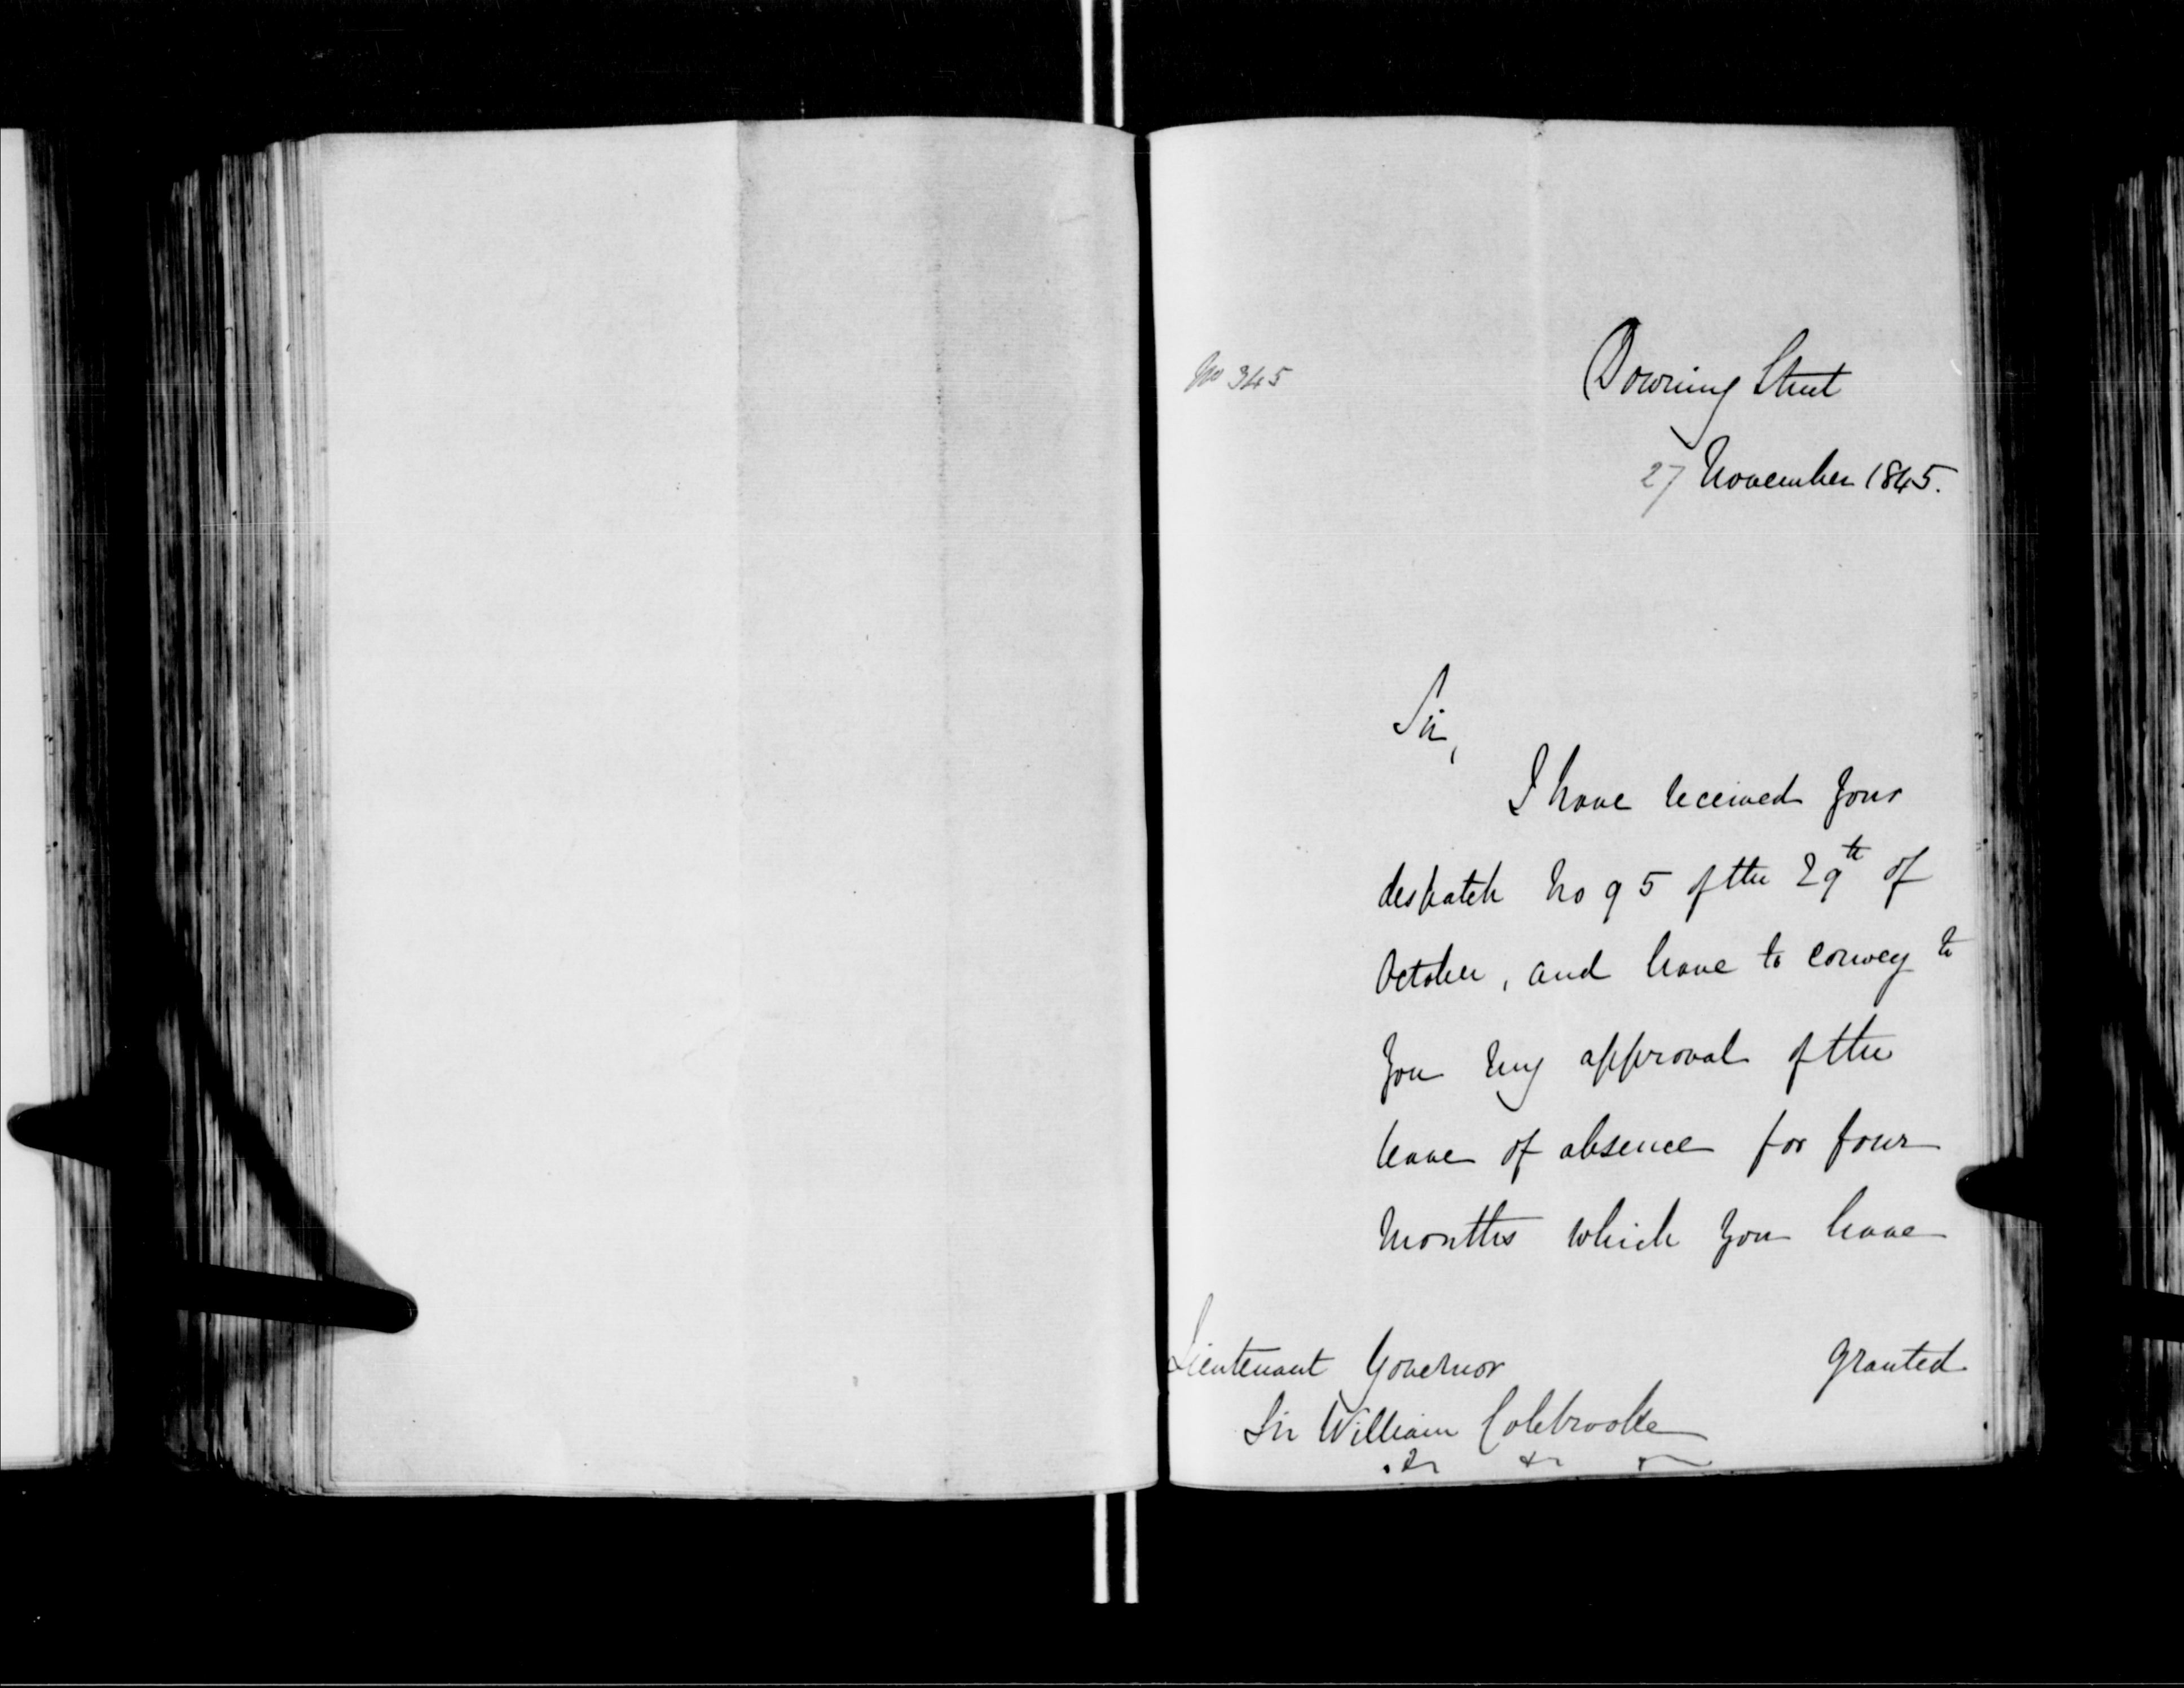 No 345
Downing Street
27 November 1845.
Sir,
I have received your
despatch No 95 of the 29th of
October, and have to convey to
you my approval of the
leave of absence for four
months which you have
granted
Lieutenant Governor
Sir William Colebrooke
&c &c &c